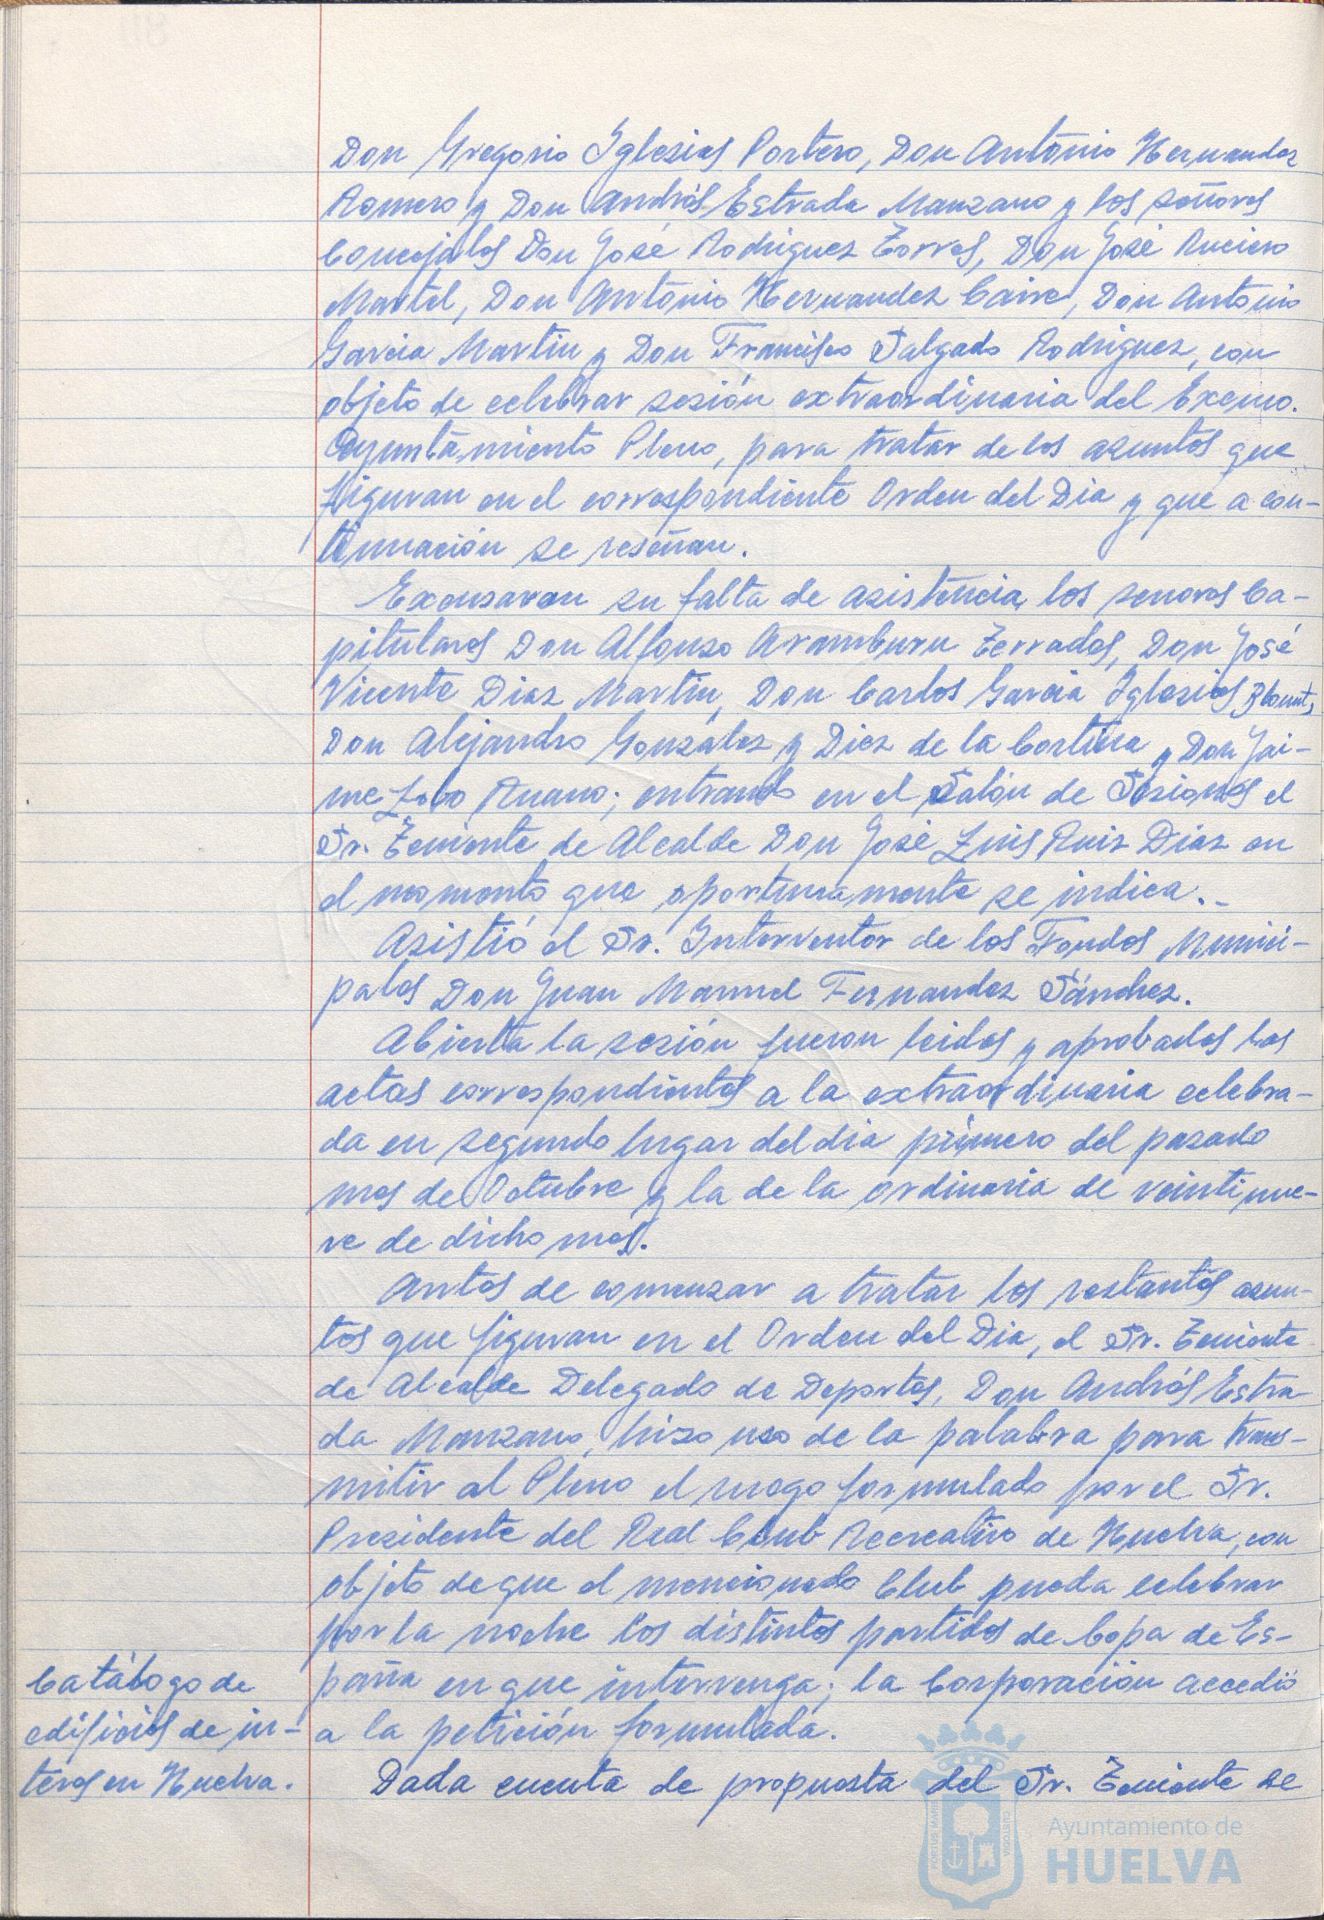 Don Gregorio Iglesias Portero, Don Antonio Hernandez
Romero y Don Andrés Estrada Manzano y los señores
Concejales Don José Rodriguez Torres, Don José Ruciero
Martel, Don Antonio Hernandez Caire, Don Antonio
Garcia Martin y Don Francisco Salgado Rodriguez, con
objeto de celebrar sesión extraordinaria del Excmo.
Ayuntamiento Pleno, para tratar de los asuntos que
figuran en el correspondiente Orden del Dia y que a con-
tinuación se reseñan.
Excusaron su falta de asistencia los señores Ca-
pitulares Don Alfonso Aramburu Terrades, Don José
Vicente Diaz Martin, Don Carlos Garcia Iglesias,
Don Alejandro González y Diez de la Cortina y Don Jai-
me Lobo Ruano; entrando en el Salón de Sesiones el
Sr. Teniente de Alcalde Don José Luis Ruiz Diaz en
el momento que oportunamente se indica.-
Asistió el Sr. Interventor de los Fondos Munici-
pales Don Juan Manuel Fernandez Sánchez.
Abierta la sesión fueron leidas y aprobadas las
actas correspondientes a la extraordinaria celebra-
da en segundo lugar del dia primero del pasado
mes de Octubre y la de la ordinaria de veintinue-
ve de dicho mes.
Antes de comenzar a tratar los restantes asun-
tos que figuran en el Orden del Dia, el Sr. Teniente
de Alcalde Delegado de Deportes, Don Andrés Estra-
da Manzano, hizo uso de la palabra para trans-
mitir al Pleno el ruego formulado por el Sr.
Presidente del Real Club Recreativo de Huelva, con
objeto de que el mencionado Club pueda celebrar
por la noche los distintos partidos de Copa de Es-
paña en que intervenga; la Corporación accedió
a la petición formulada.
Catálogo de
edificios de in-
teres en Huelva.
Dada cuenta de propuesta del Sr. Teniente de
Ayuntamiento de
HUELVA